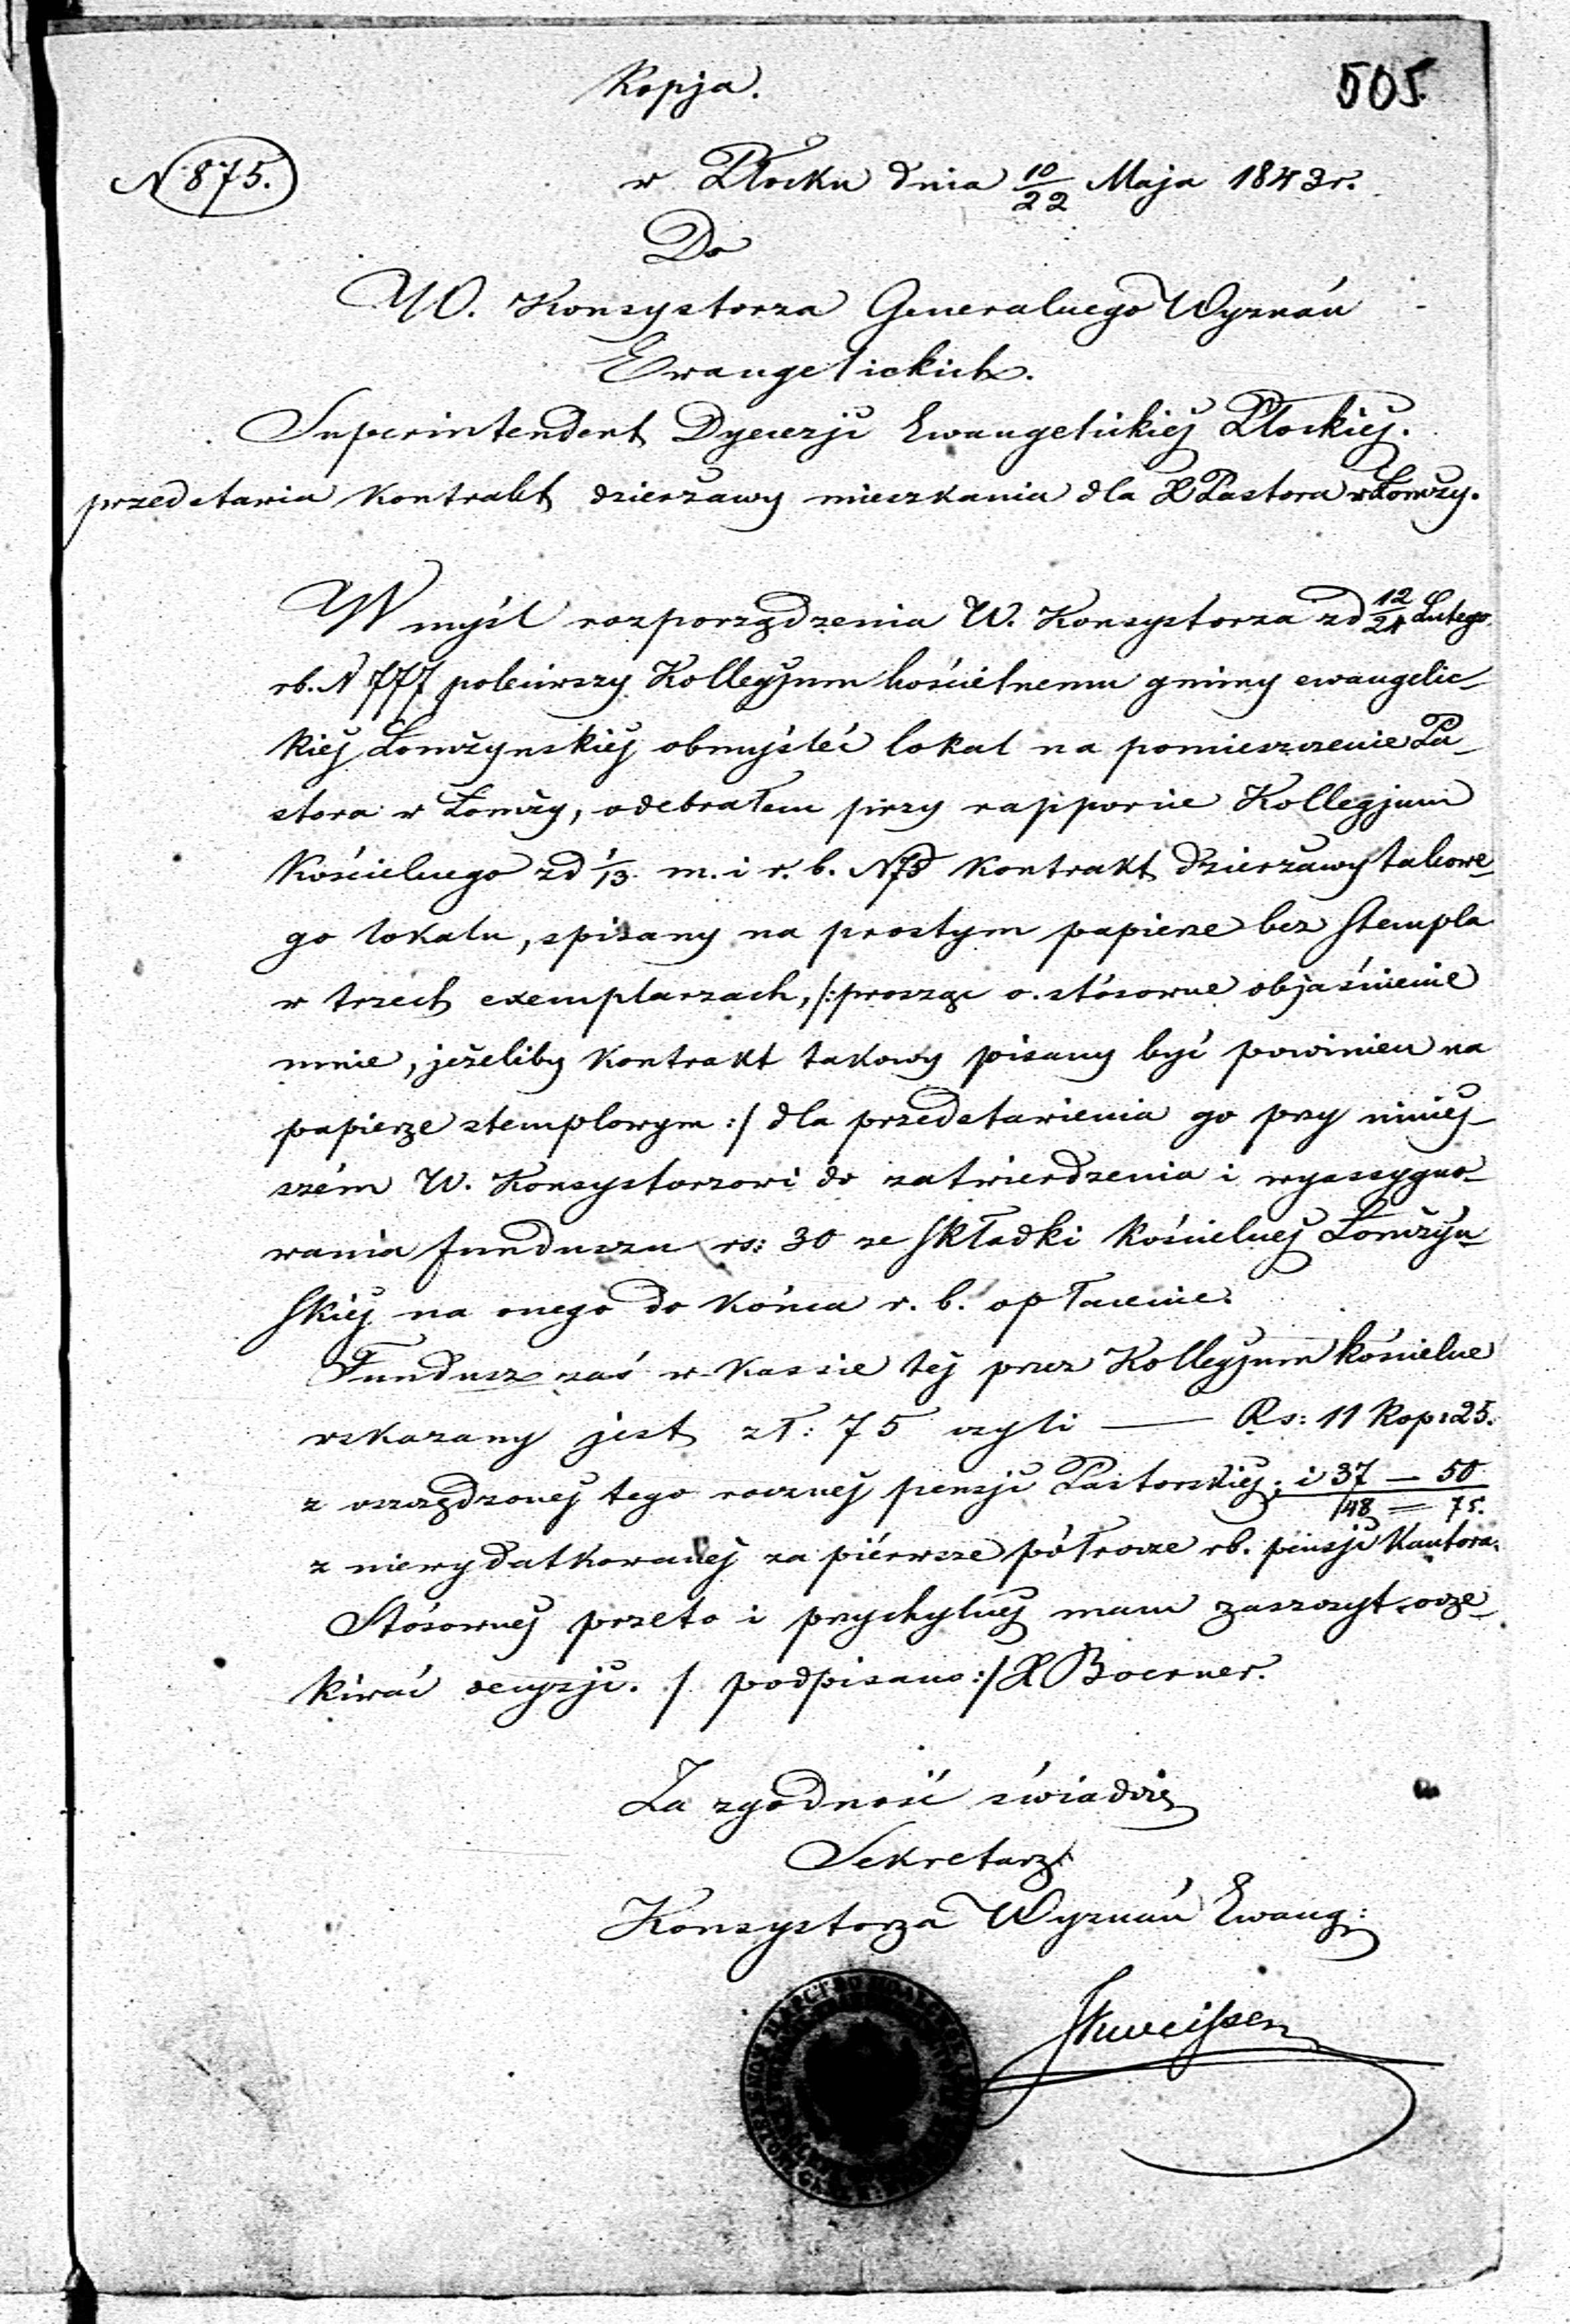 Kopja.
505.
N 875.
w Płocku dnia 10/22 Maja 1843 r.
Do
W. Konsystorza Generalnego Wyznań
Ewangelickich.
Superintendent Dyecezji Ewangelickiej Płockiej.
przedstawia kontrakt dzierżawy mieszkania dla X Pastora w Łomży.
W myśl rozporządzenia W. Konsystorza zd 12/24 Lutego
rb. N 777 poleciwszy Kollegjum kościelnemu gminy ewangelic-
kiej Łomżynskiej obmyśleć lokal na pomieszczenie Pa-
stora w Łomży, odebrałem przy rapporcie Kollegjum
Kościelnego zd 1/13 m. i r. b. N kontrakt dzierżawy takowe-
go lokalu, spisany na prostym papierze bez stempla
w trzech exemplarzach, /: prosząc o stósowne objaśnienie
mnie, jeżeliby kontrakt takowy pisany być powinien na
papierze stemplowym :/ dla przedstawienia go przy niniej-
szém W. Konsystorzowi do zatwierdzenia i wyassygno-
wania funduszu rs: 30 ze składki kościelnej Łomżyn-
skiej na onego do końca r. b. opłacenie.
Fundusz zaś w kassie tej przez Kollegjum kościelne
wskazany jest zł: 75 czyli — Rs: 11 Kop: 25.
z oszczędzonej tego rocznej pensji Pastorskiej; i 37 — 50
48 = 75.
z niewydatkowanej za piérwsze półrocze rb. pensji Kantora.
Stósownej przeto i przychylnej mam zaszczyt ocze-
kiwać decyzji. / podpisano :/ X Boerner.
Za zgodność świadczę
Sekretarz
Konsystorza Wyznań Ewang: